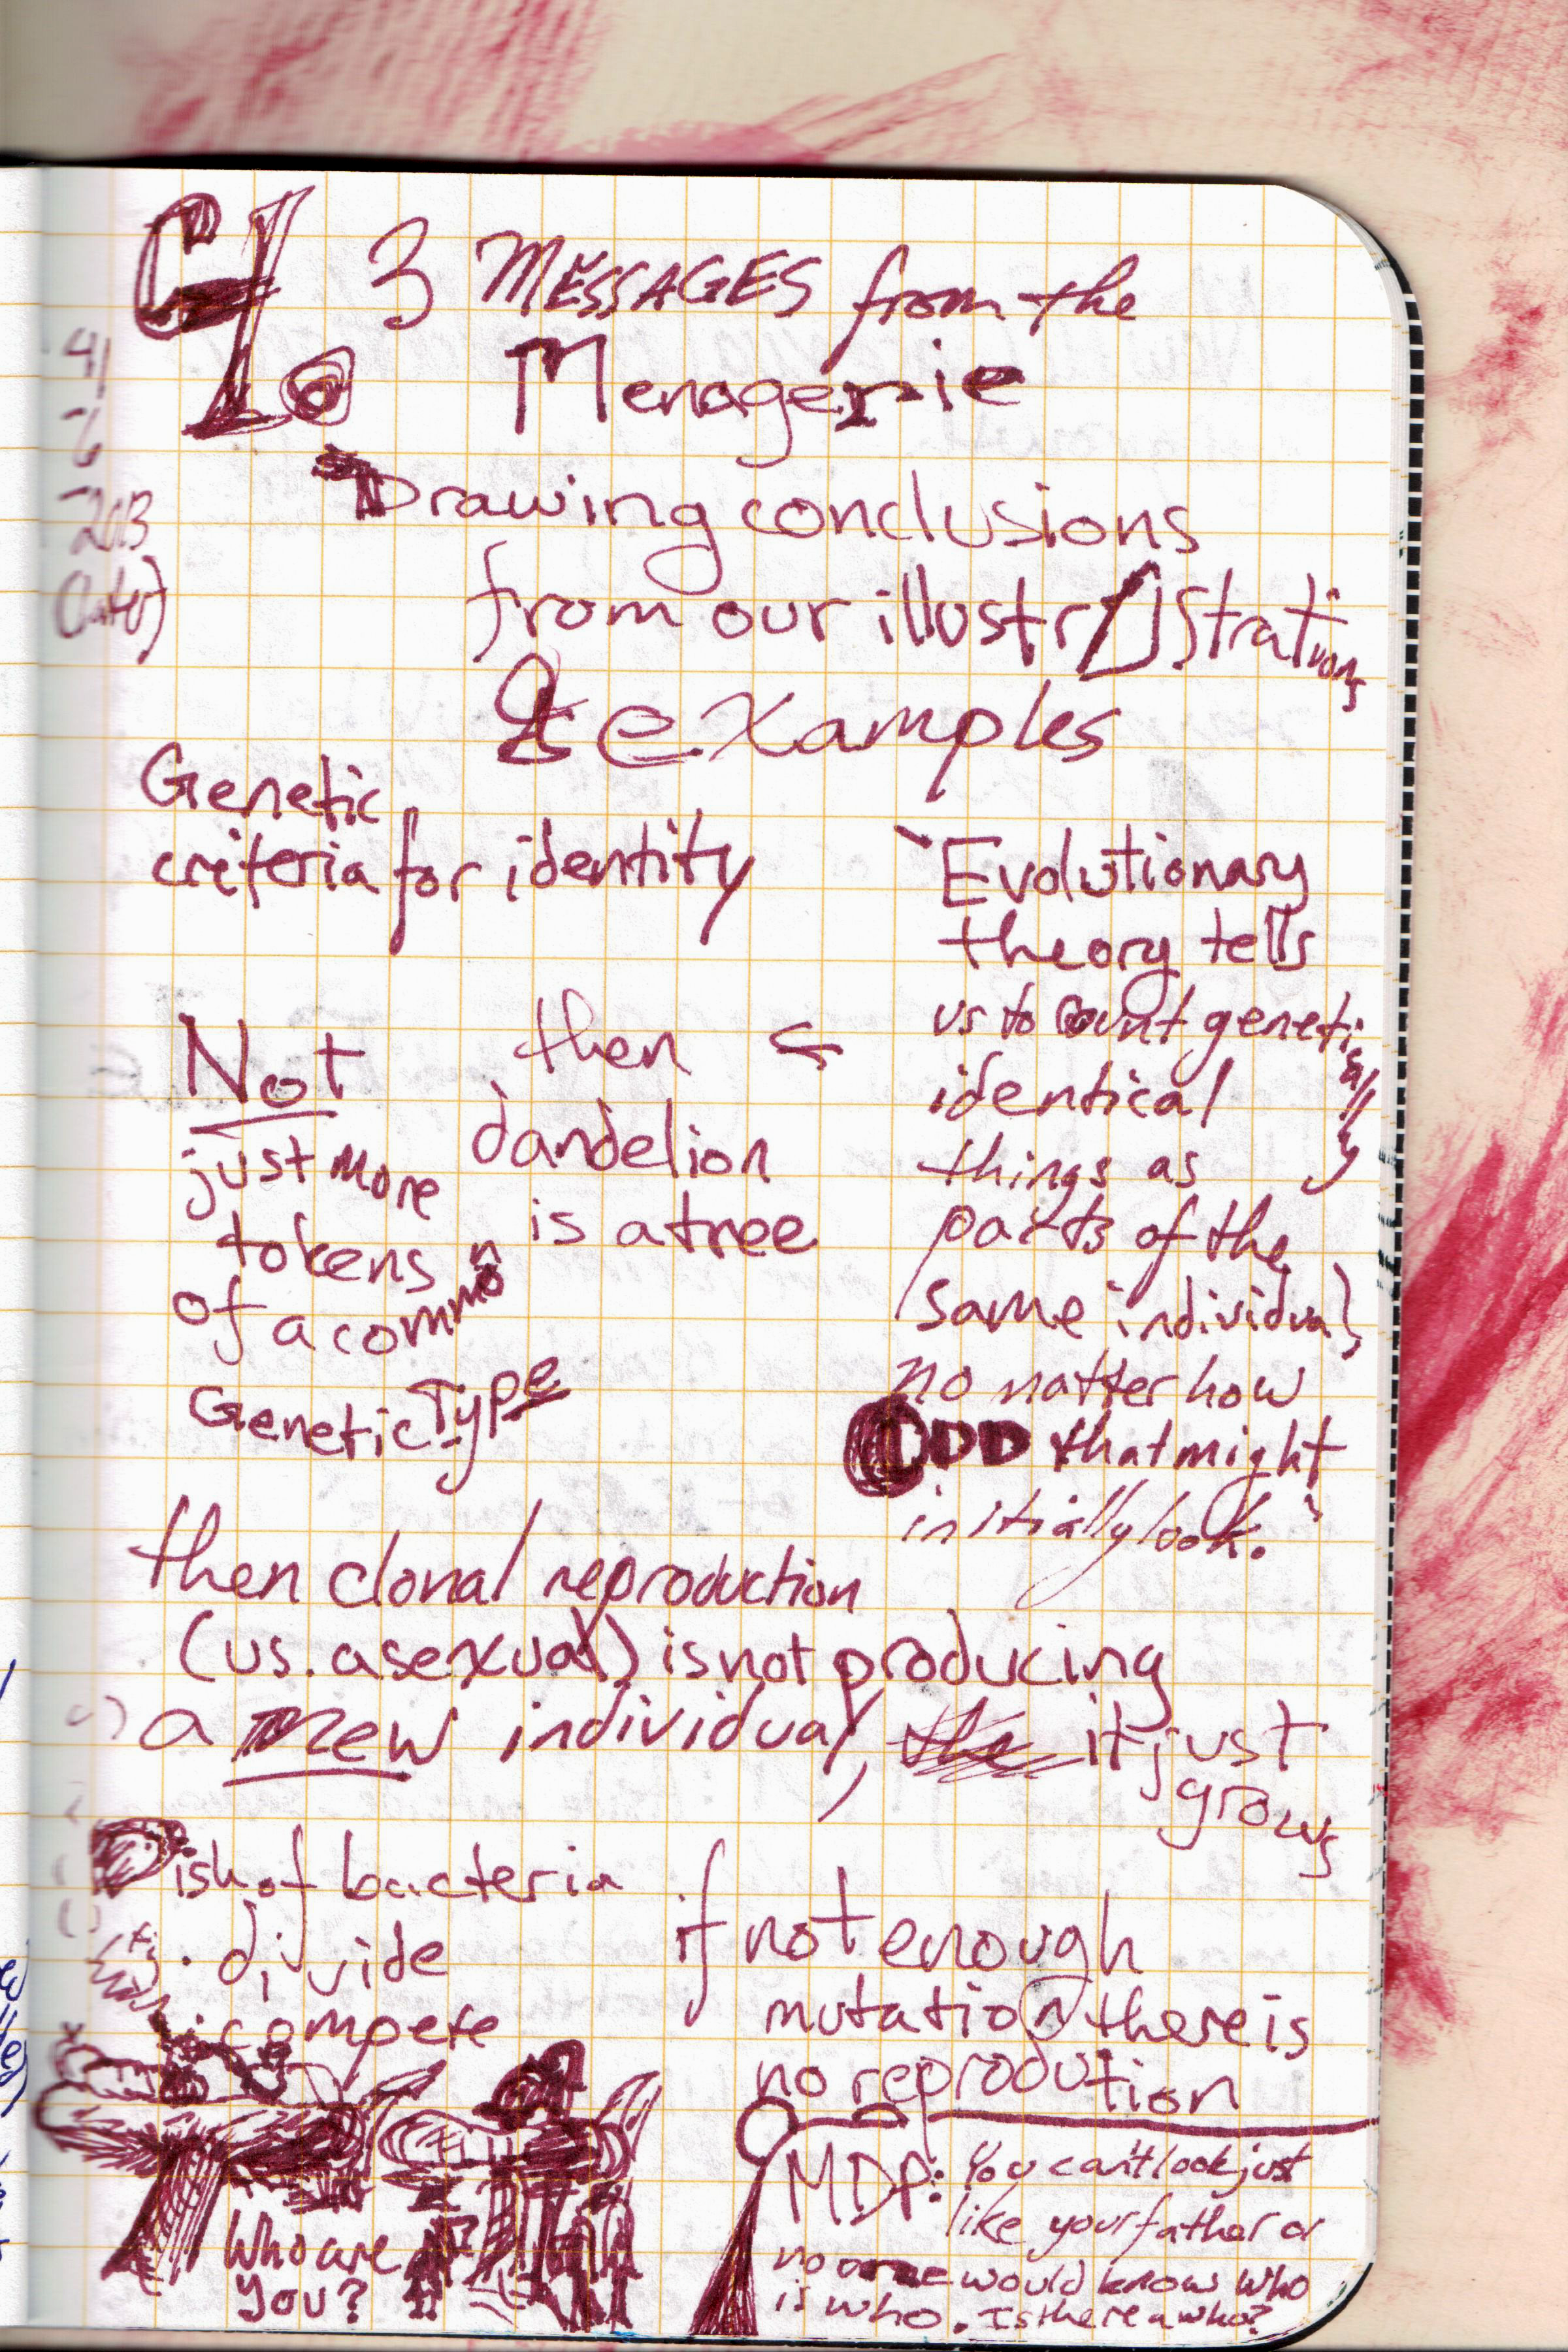 3 MESSAGES from the
Menagerie
4/
-6
-2013
(later)
Drawing conclusions
from our illustr strations
& examples
Genetic
criteria for identity
Evolutionary
theory tells
us to count genetically
identical
things as
parts of the
same individual,
no matter how
ODD that might
initially look.
then
dandelion
is a tree
Not
just more
tokens
of a common
Genetic Type
then clonal reproduction
(vs. asexual) is not producing
a new individual, it just
grows
Dish of bacteria
divide
compete
if not enough
mutation there is
no reprodution
Who are
you?
MDP: You can't look just
like your father or
no one would know who
is who. Is there a who?